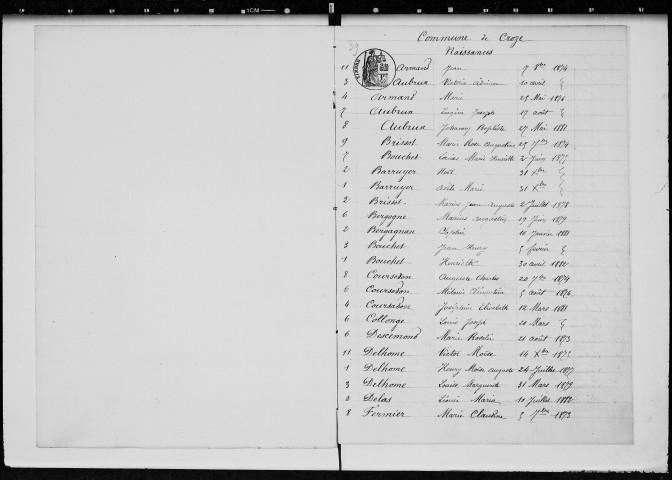 1CM
39
Commune de Croze
Naissances
11 Armand Jean 9 8bre 1874
3 Aubrun Victoire 20 avril
4 Armand Marie 25 Mai 1876
7 Aubrun Eugène Joseph 17 août
8 Aubrun Baptiste 27 Mai 1881
9 Brissot Marie Rose 25 7bre 1874
7 Bouchet Louise Marie Henriette 2 Juin 1877
2 Barruyer Noël 31 Xbre
1 Barruyer Marie 31 Xbre
2 Brissot Marius Jean Auguste 2 Juillet 1878
6 Bergogne Marius Augustin 19 Juin 1879
2 Bergagnan 10 Janvier 1881
3 Bouchet Jean Henry 5 février
1 Bouchet Henriette 30 avril 1882
8 Coursodon Auguste Charles 20 7bre 1874
6 Coursodon Mélanie Clémentine 5 août 1876
4 Coursodon Joséphine Elisabeth 12 Mars 1881
6 Collonge Louis Joseph 20 Mars
6 Descimond Marie Rosalie 21 août 1873
11 Delhome Victor Moïse 14 Xbre 1875
1 Delhome Henry Moïse Auguste 24 Juillet 1877
3 Delhome Louise Marguerite 31 Mars 1879
6 Delas Léonie Maria 10 Juillet 1882
8 Fermier Marie Claudine 5 7bre 1873